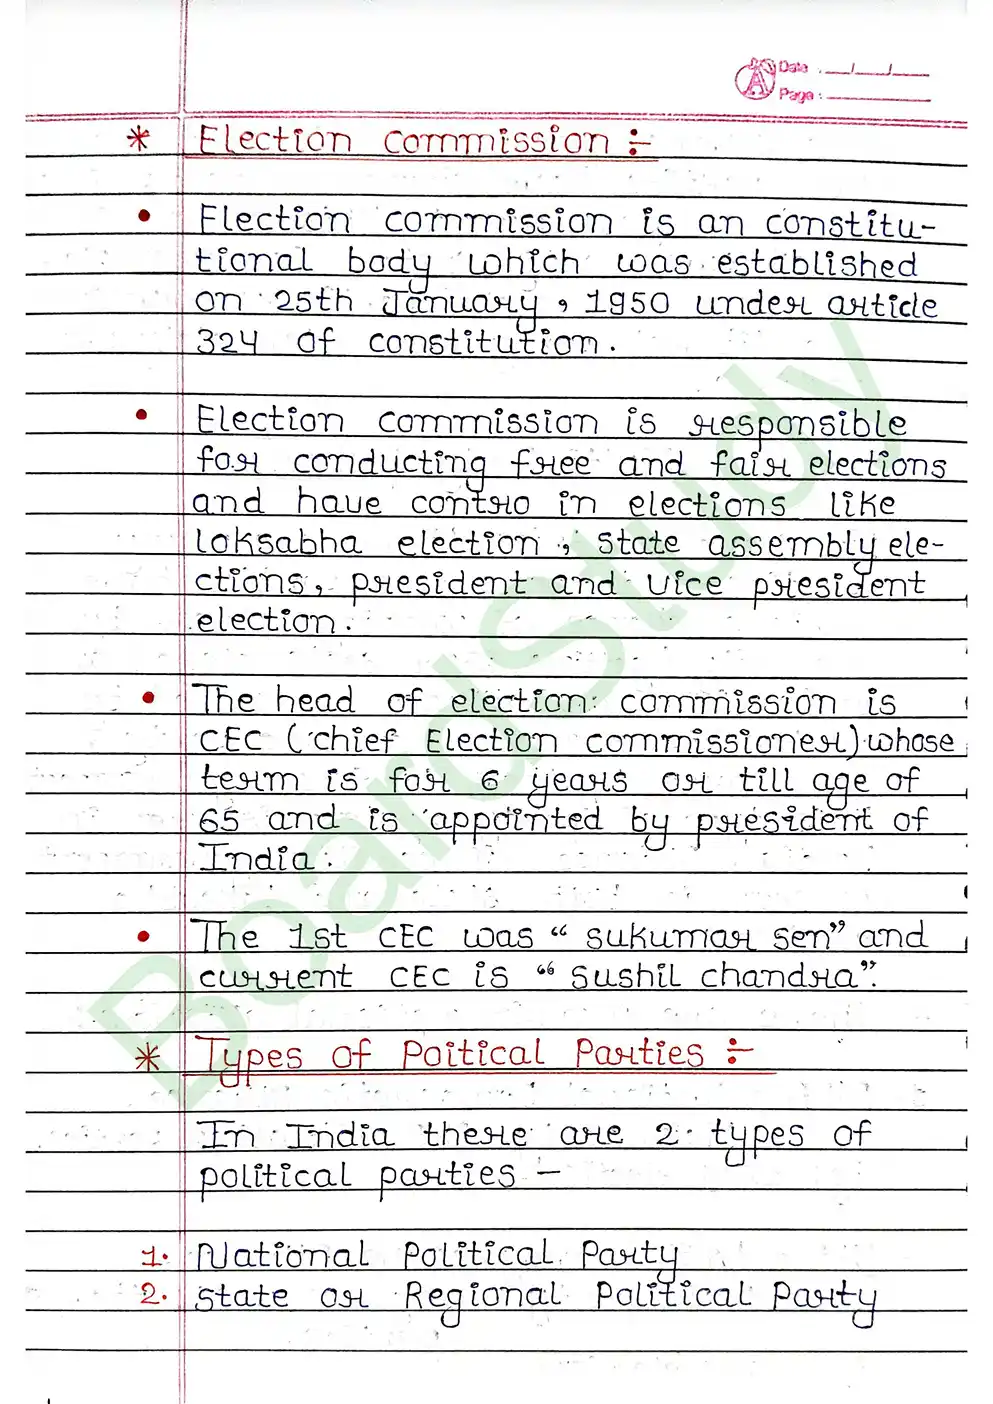 Date : __/__/__
Page : ________
* Election commission :-
• Election commission is an constitu-
tional body which was established
on 25th January, 1950 under article
324 of constitution.
• Election commission is responsible
for conducting free and fair elections
and have contro in elections like
loksabha election, state assembly ele-
ctions, president and vice president
election.
• The head of election commission is
CEC (chief Election commissioner) whose
term is for 6 years or till age of
65 and is appointed by president of
India.
• The 1st CEC was “sukumar sen” and
current CEC is “sushil chandra”.
* Types of Poitical Parties :-
In India there are 2 types of
political parties –
1. National Political Party
2. state or Regional Political Party
BoardStudy